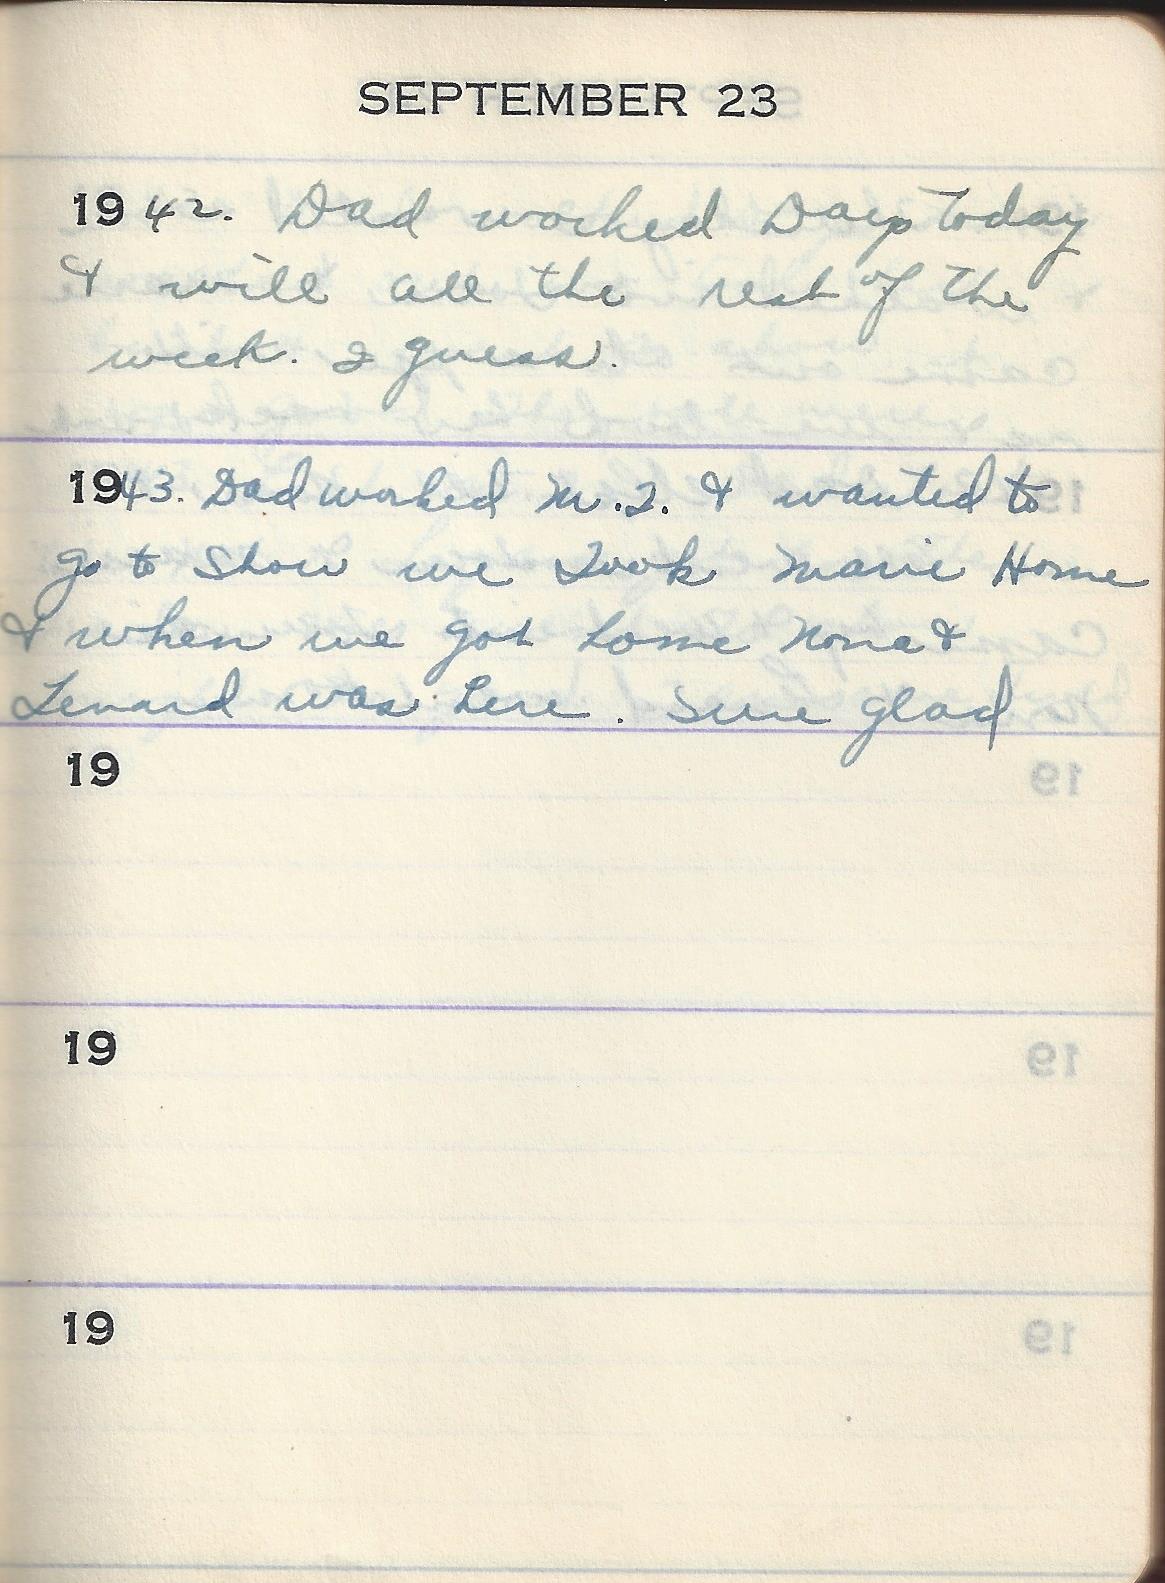 SEPTEMBER 23
19 42. Dad worked Days Today
& will all the rest of the
week. I guess.
1943. Dad worked M.T. & wanted to
go to Show we Took Marie Home
& when we got home Nona &
Lenard was here. Sure glad
19
19
19